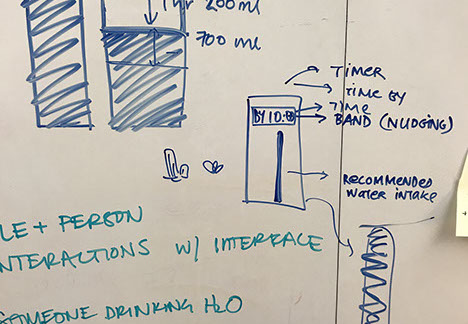 1 hr 200 ml
700 ml
TIMER
TIME BY
TIME
BAND (NUDGING)
BY 10:00
RECOMMENDED
WATER INTAKE
LE + PERSON
NTERACTIONS W/ INTERFACE
SOMEONE DRINKING H2O